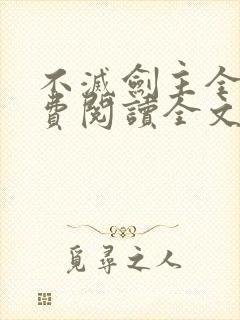 不滅劍主全
費閱讀全文
覓尋之人